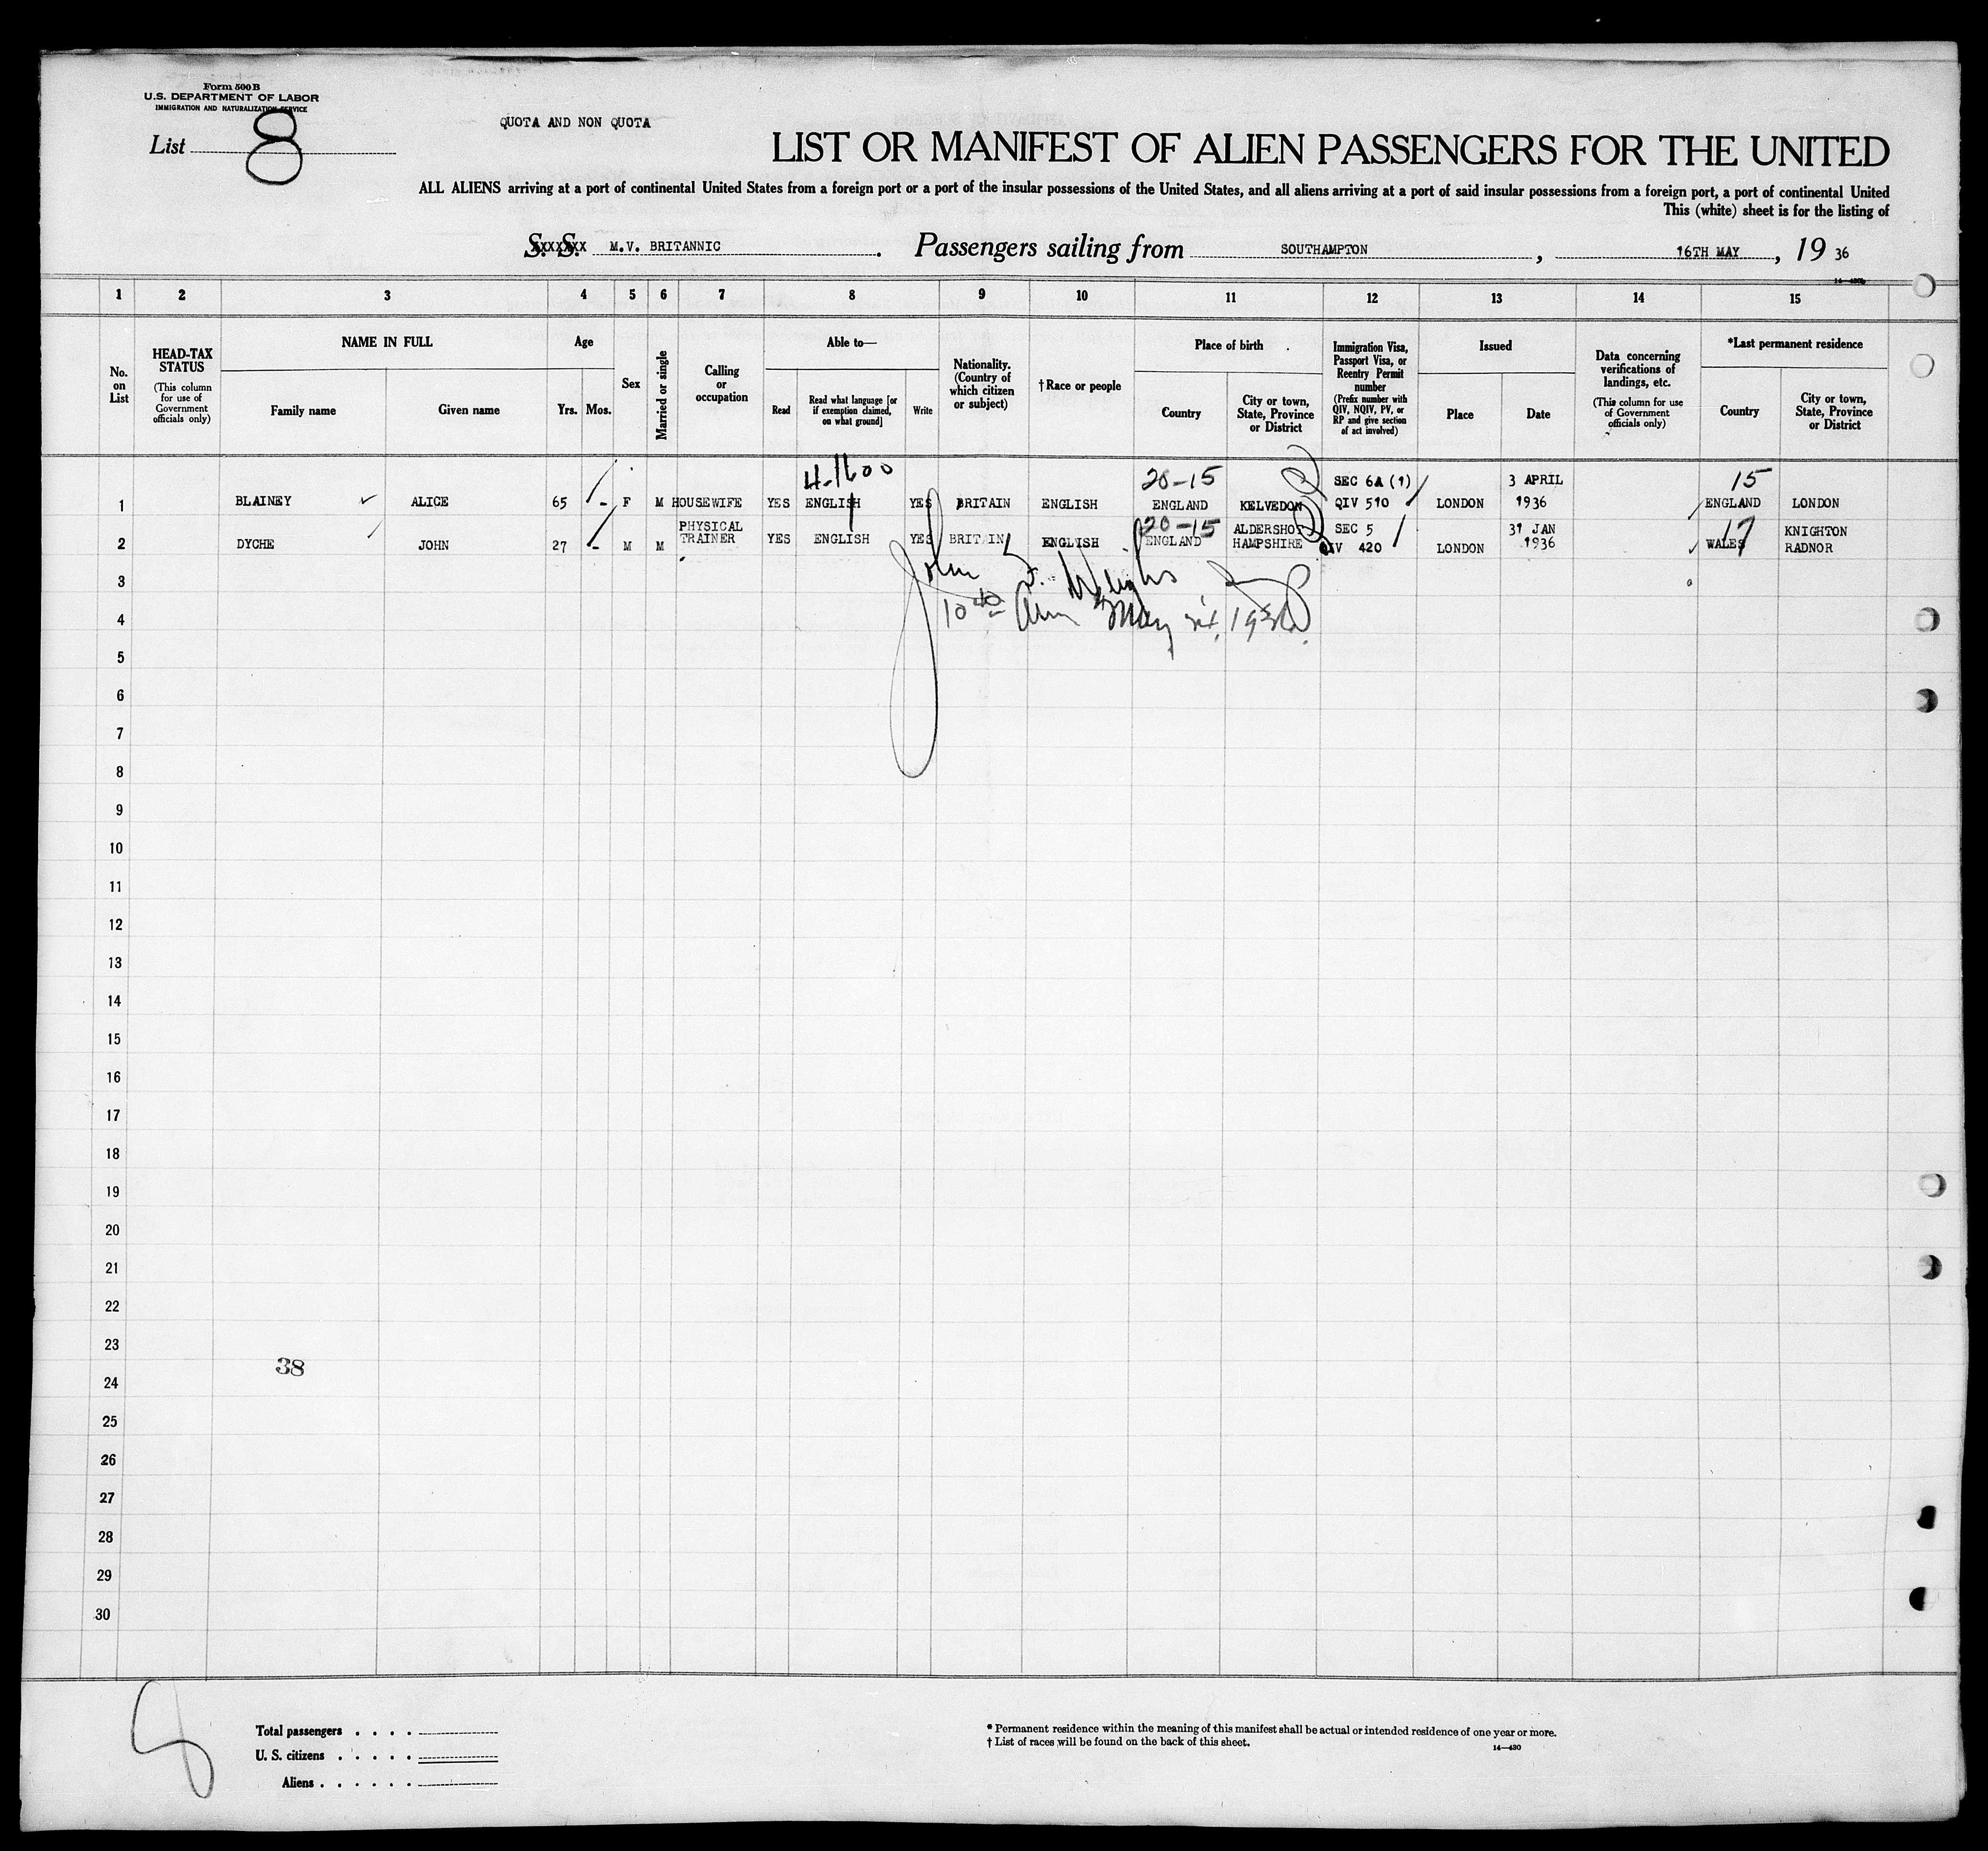 Form 500 B
U.S. DEPARTMENT OF LABOR
IMMIGRATION AND NATURALIZATION SERVICE
List 8
QUOTA AND NON QUOTA
LIST OR MANIFEST OF ALIEN PASSENGERS FOR THE UNITED
ALL ALIENS arriving at a port of continental United States from a foreign port or a port of the insular possessions of the United States, and all aliens arriving at a port of said insular possessions from a foreign port, a port of continental United
This (white) sheet is for the listing of
S. S. M.V. BRITANNIC. Passengers sailing from SOUTHAMPTON, 16TH MAY, 19 36
14—430b
1 2 3 4 5 6 7 8 9 10 11 12 13 14 15
No. on List
HEAD-TAX STATUS
(This column for use of Government officials only)
NAME IN FULL
Family name
Given name
Age
Yrs. Mos.
Sex
Married or single
Calling or occupation
Able to—
Read
Read what language [or if exemption claimed, on what ground]
Write
Nationality. (Country of which citizen or subject)
† Race or people
Place of birth
Country
City or town, State, Province or District
Immigration Visa, Passport Visa, or Reentry Permit number
(Prefix number with QIV, NQIV, PV, or RP and give section of act involved)
Issued
Place
Date
Data concerning verifications of landings, etc.
(This column for use of Government officials only)
*Last permanent residence
Country
City or town, State, Province or District
4-1600 20-15 SEC 6A (1) 3 APRIL 15
1 BLAINEY ALICE 65 - F M HOUSEWIFE YES ENGLISH YES BRITAIN ENGLISH ENGLAND KELVEDON QIV 510 LONDON 1936 ENGLAND LONDON
PHYSICAL 20-15 ALDERSHOT SEC 5 31 JAN 17 KNIGHTON
2 DYCHE JOHN 27 - M M TRAINER YES ENGLISH YES BRITAIN ENGLISH ENGLAND HAMPSHIRE QIV 420 LONDON 1936 WALES RADNOR
3 John
4 10 40 am May
5
6
7
8
9
10
11
12
13
14
15
16
17
18
19
20
21
22
23
38
24
25
26
27
28
29
30
8
Total passengers . . . .
U. S. citizens . . . . .
Aliens . . . . . .
* Permanent residence within the meaning of this manifest shall be actual or intended residence of one year or more.
† List of races will be found on the back of this sheet.
14—430